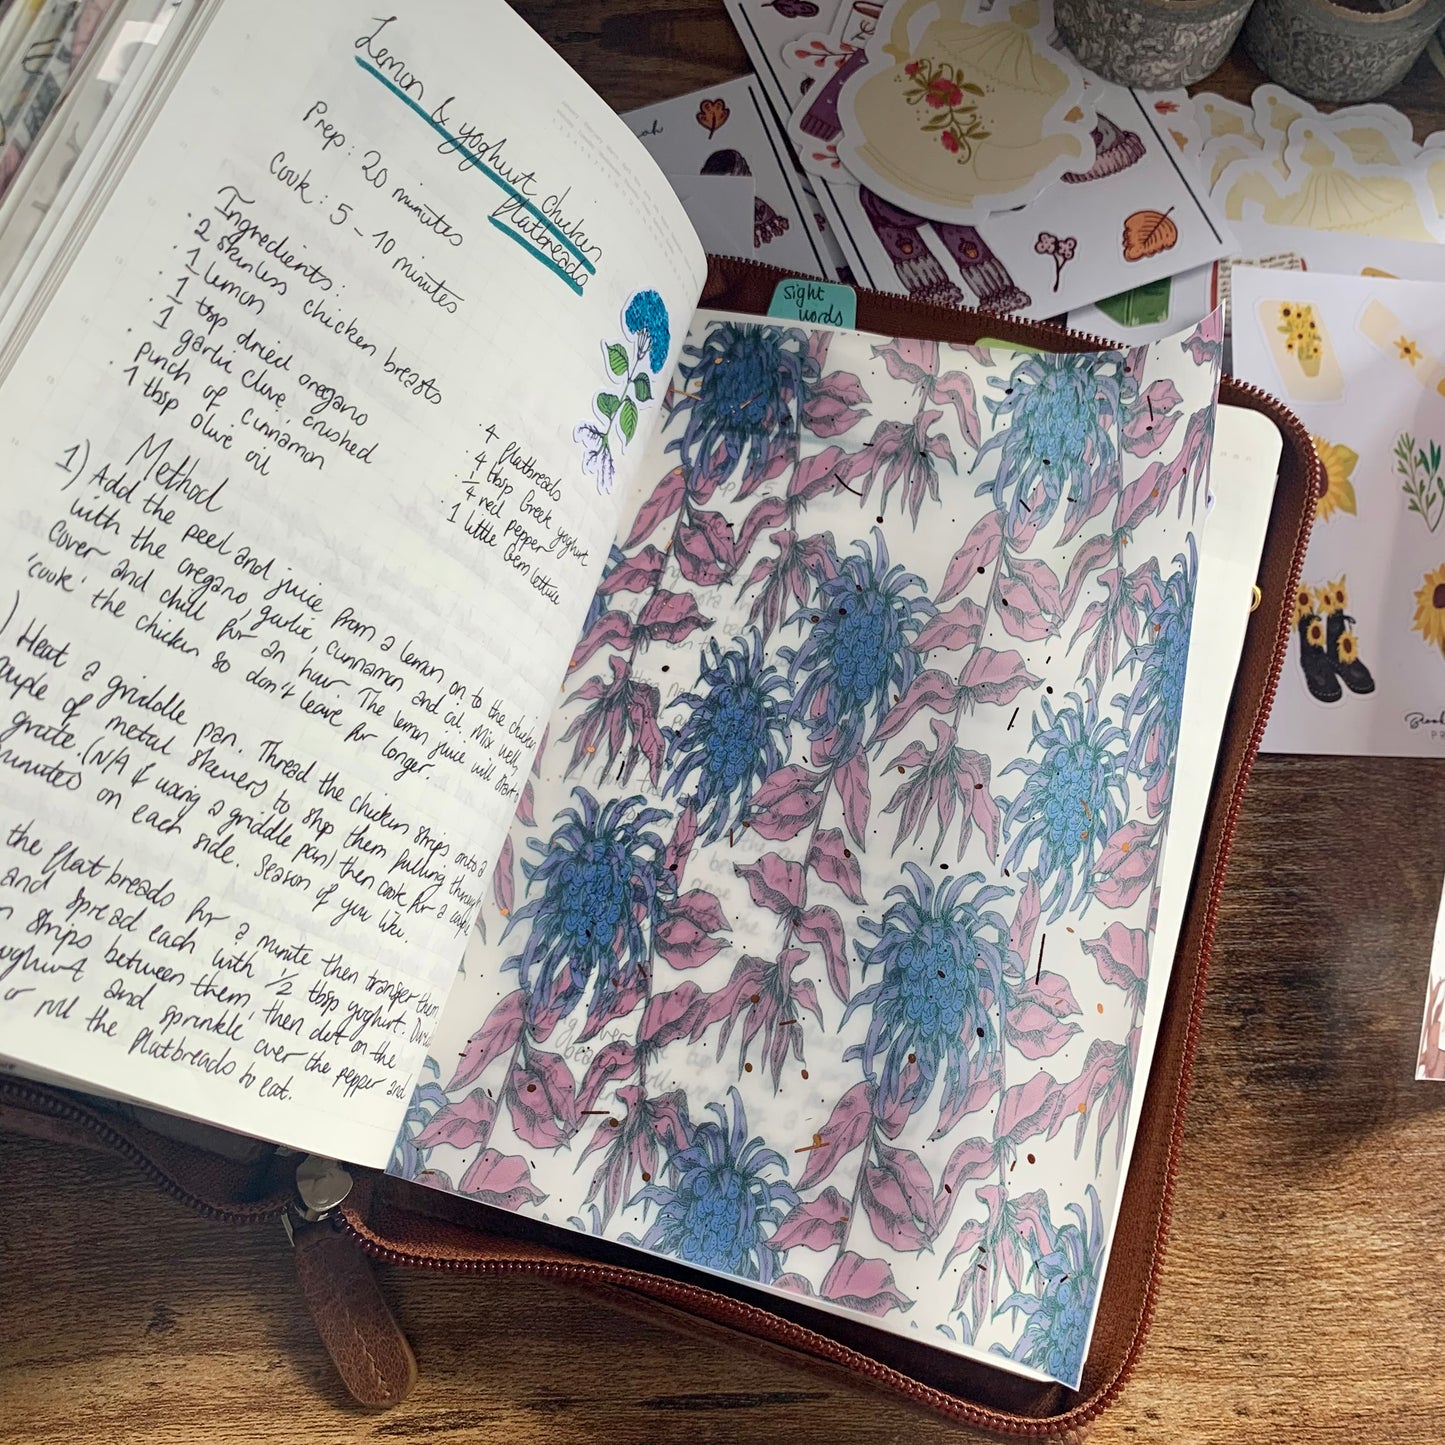 Lemon & yoghurt chicken
flatbreads
Prep: 20 minutes
Cook: 5 - 10 minutes
Ingredients:
· 2 skinless chicken breasts
· 1 lemon
· 1 tsp dried oregano
· 1 garlic clove crushed
pinch of cinnamon
· 1 tbsp olive oil
· 4 flatbreads
· 4 tbsp Greek yoghurt
· 1/4 red pepper
· 1 little Gem lettuce
Method
1) Add the peel and juice from a lemon on to the chicken
with the oregano, garlic, cinnamon and oil. Mix well,
Cover and chill for an hour. The lemon juice will start
'cook' the chicken so don't leave for longer.
) Heat a griddle pan. Thread the chicken strips onto a
couple of metal skewers to stop them falling through
grate. (N/A if using a griddle pan) then cook for a couple
minutes on each side. Season if you like.
the flatbreads for a minute then transfer them
and spread each with 1/2 tbsp yoghurt.
strips between them, then dot on the
and sprinkle over the pepper and
or roll the flatbreads to eat.
sight
words